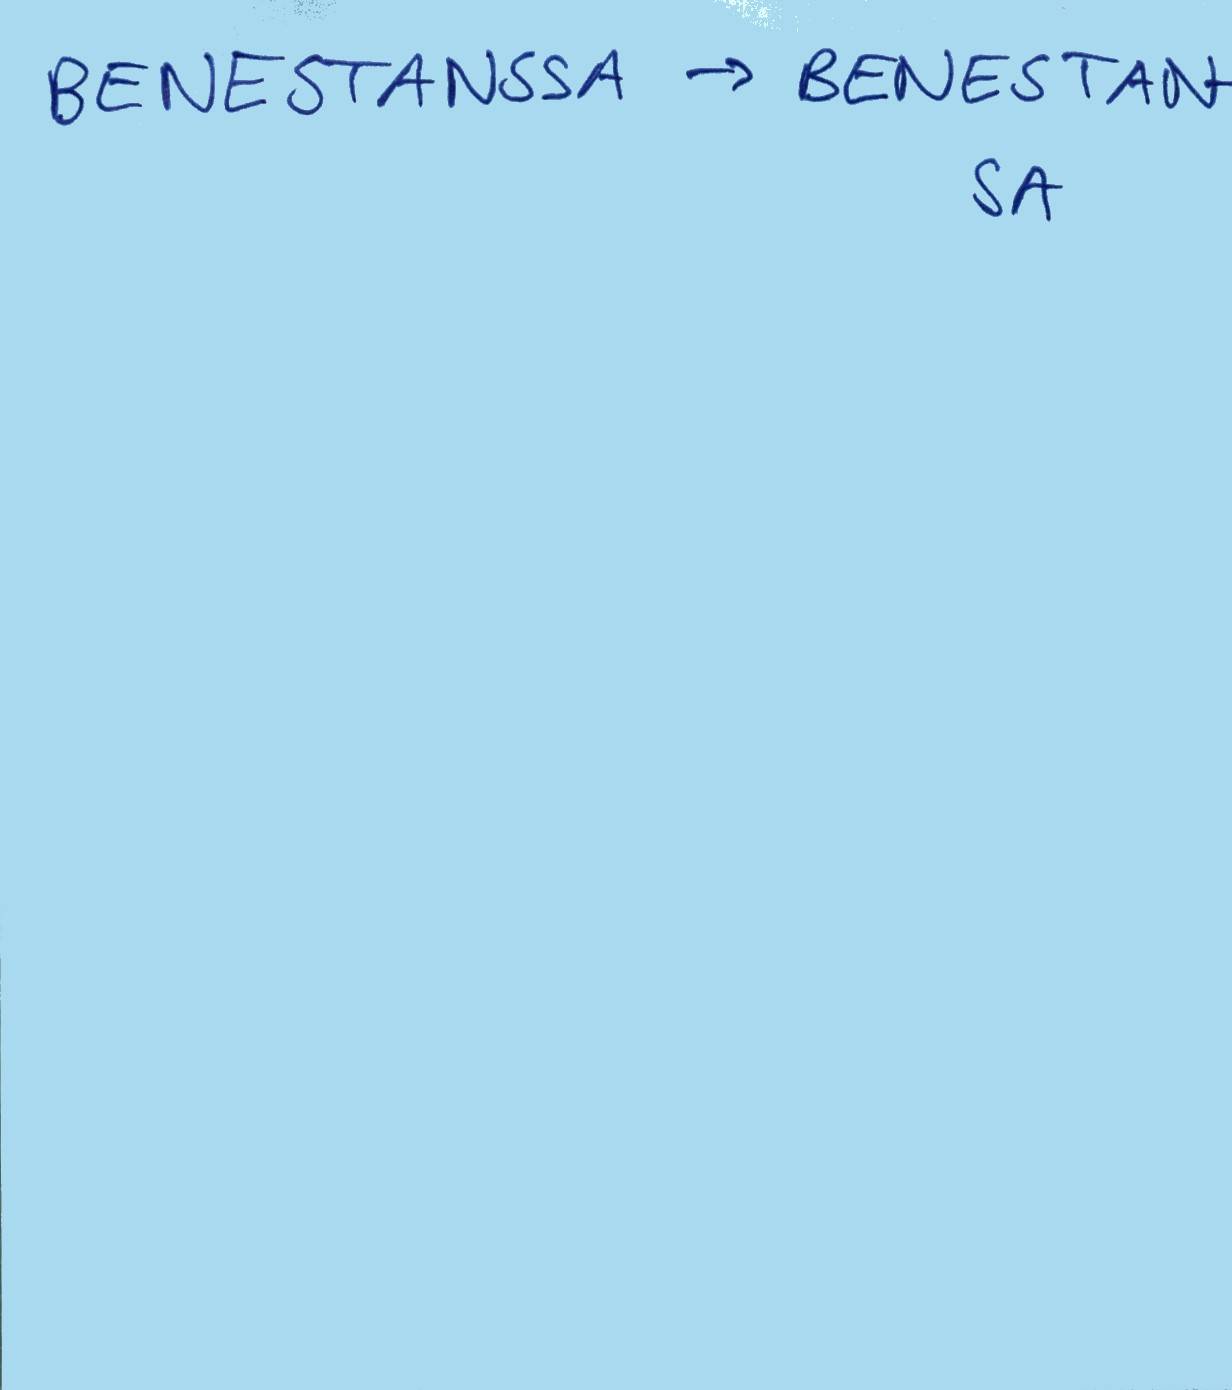 BENESTANSSA → BENESTAN-
SA